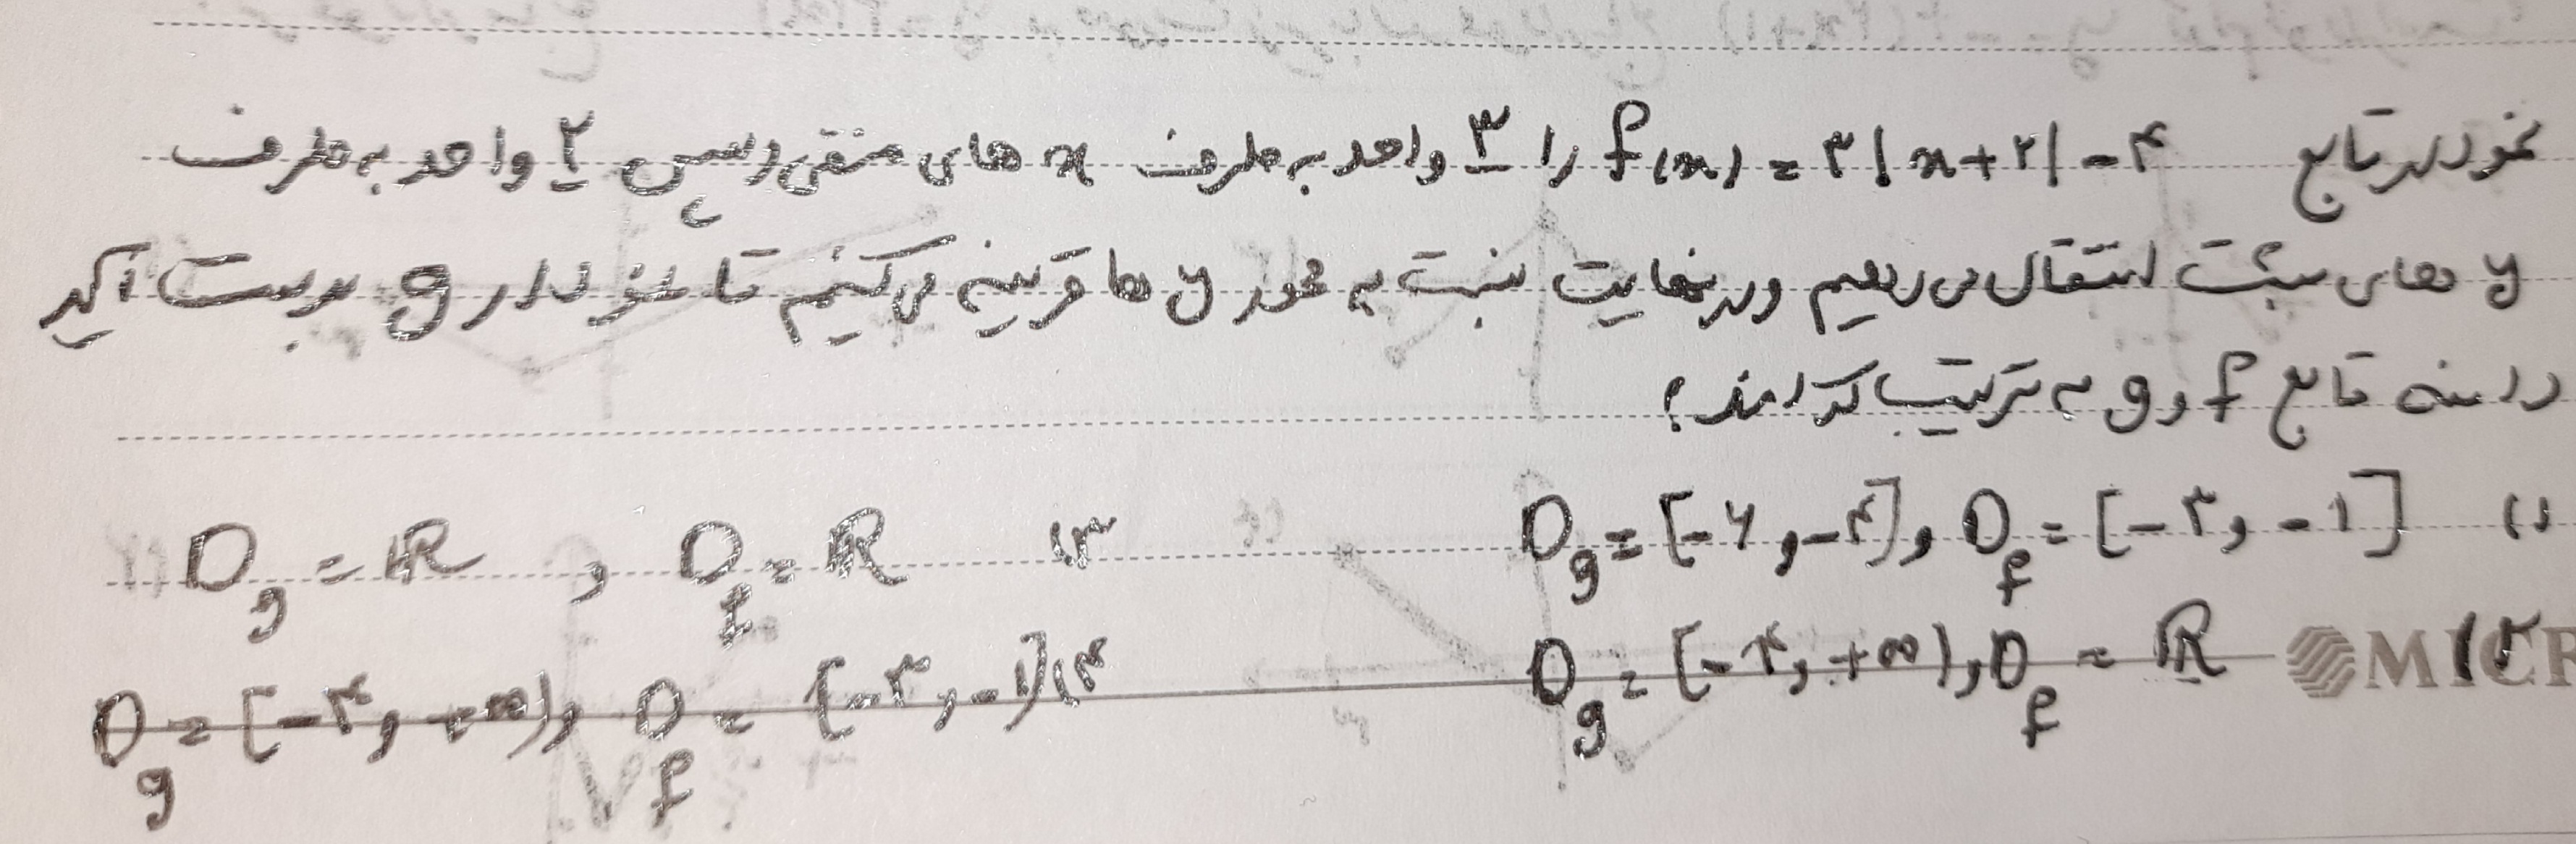 نمودار تابع f(x) = ۳|x+۲| - ۴ را ۳ واحد به طرف x های منفی و سپس ۲ واحد به طرف
y های مثبت انتقال می دهیم و در نهایت نسبت به محور y ها قرینه می کنیم تا نمودار g بدست آید
دامنه تابع f و g به ترتیب کدامند؟
۱) D_f = [-۳, -۱] , D_g = [-۶, -۴]
۲) D_f = ℝ , D_g = [-۲, +∞)
۳) D_f = ℝ , D_g = ℝ
۴) D_f = [-۳, -۱] , D_g = [-۲, +∞)
MICR